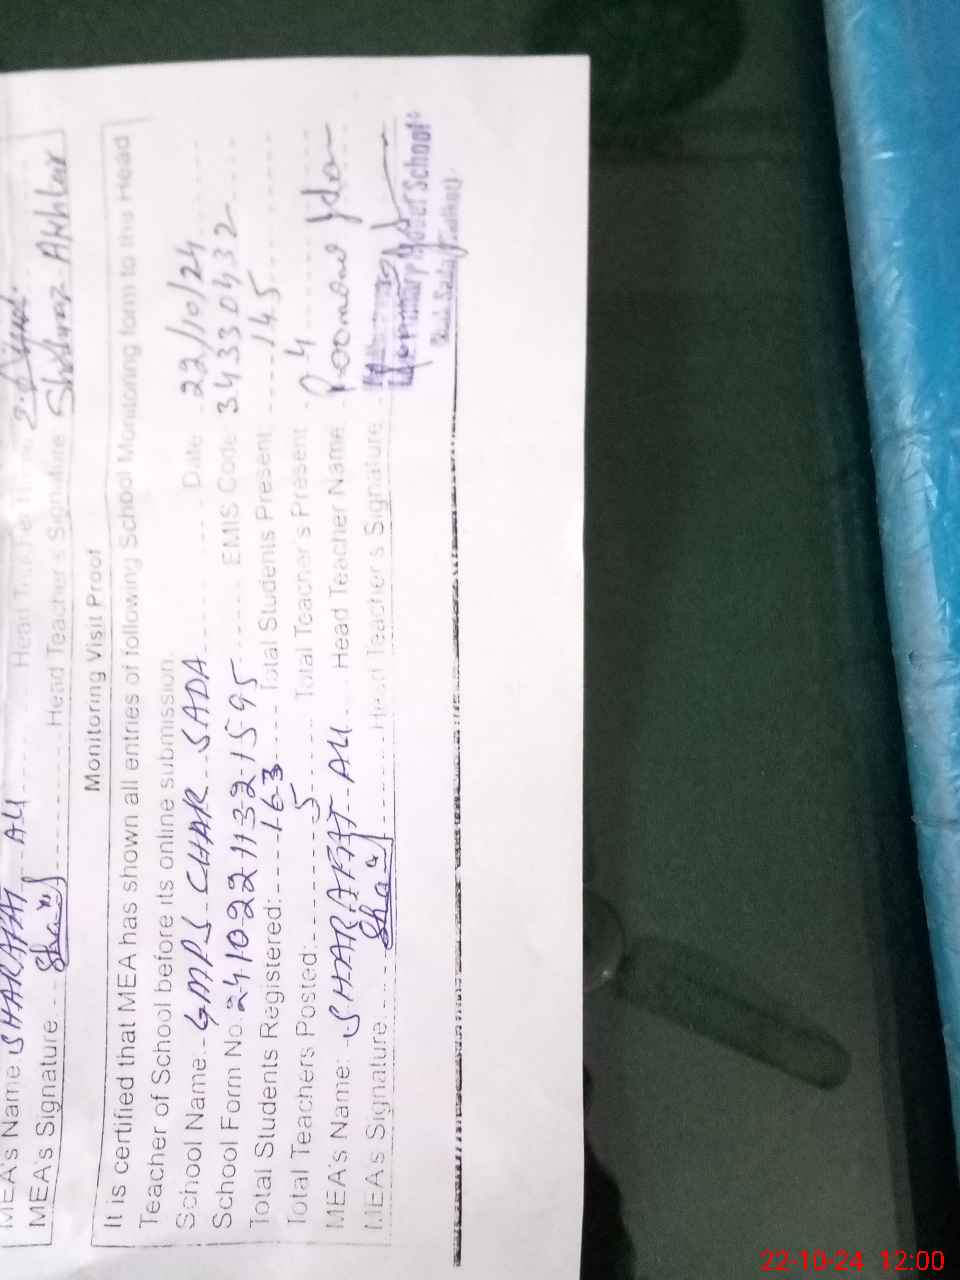 MEA's Name SHARAFAT ALI Head Teacher Name
MEA's Signature Head Teacher's Signature Shahnaz Akhtar
Monitoring Visit Proof
It is certified that MEA has shown all entries of following School Monitoring form to this Head
Teacher of School before its online submission.
School Name. GMPS CHAK SADA Date 22/10/24
School Form No. 24102211321595 EMIS Code 34330432
Total Students Registered: 163 Total Students Present 145
Total Teachers Posted: 5 Total Teacher's Present 4
MEA's Name: SHARAFAT ALI Head Teacher Name
MEA's Signature Head Teacher's Signature
School
22-10-24 12:00